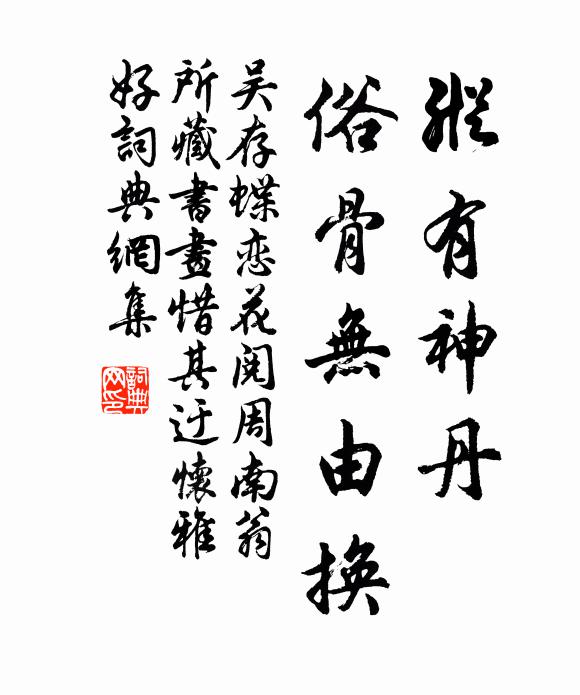 縱有神丹
俗骨無由換
吴存蝶恋花阅周南翁
所藏書畫惜其迂懷雅
好詞典網集
詞典
网印